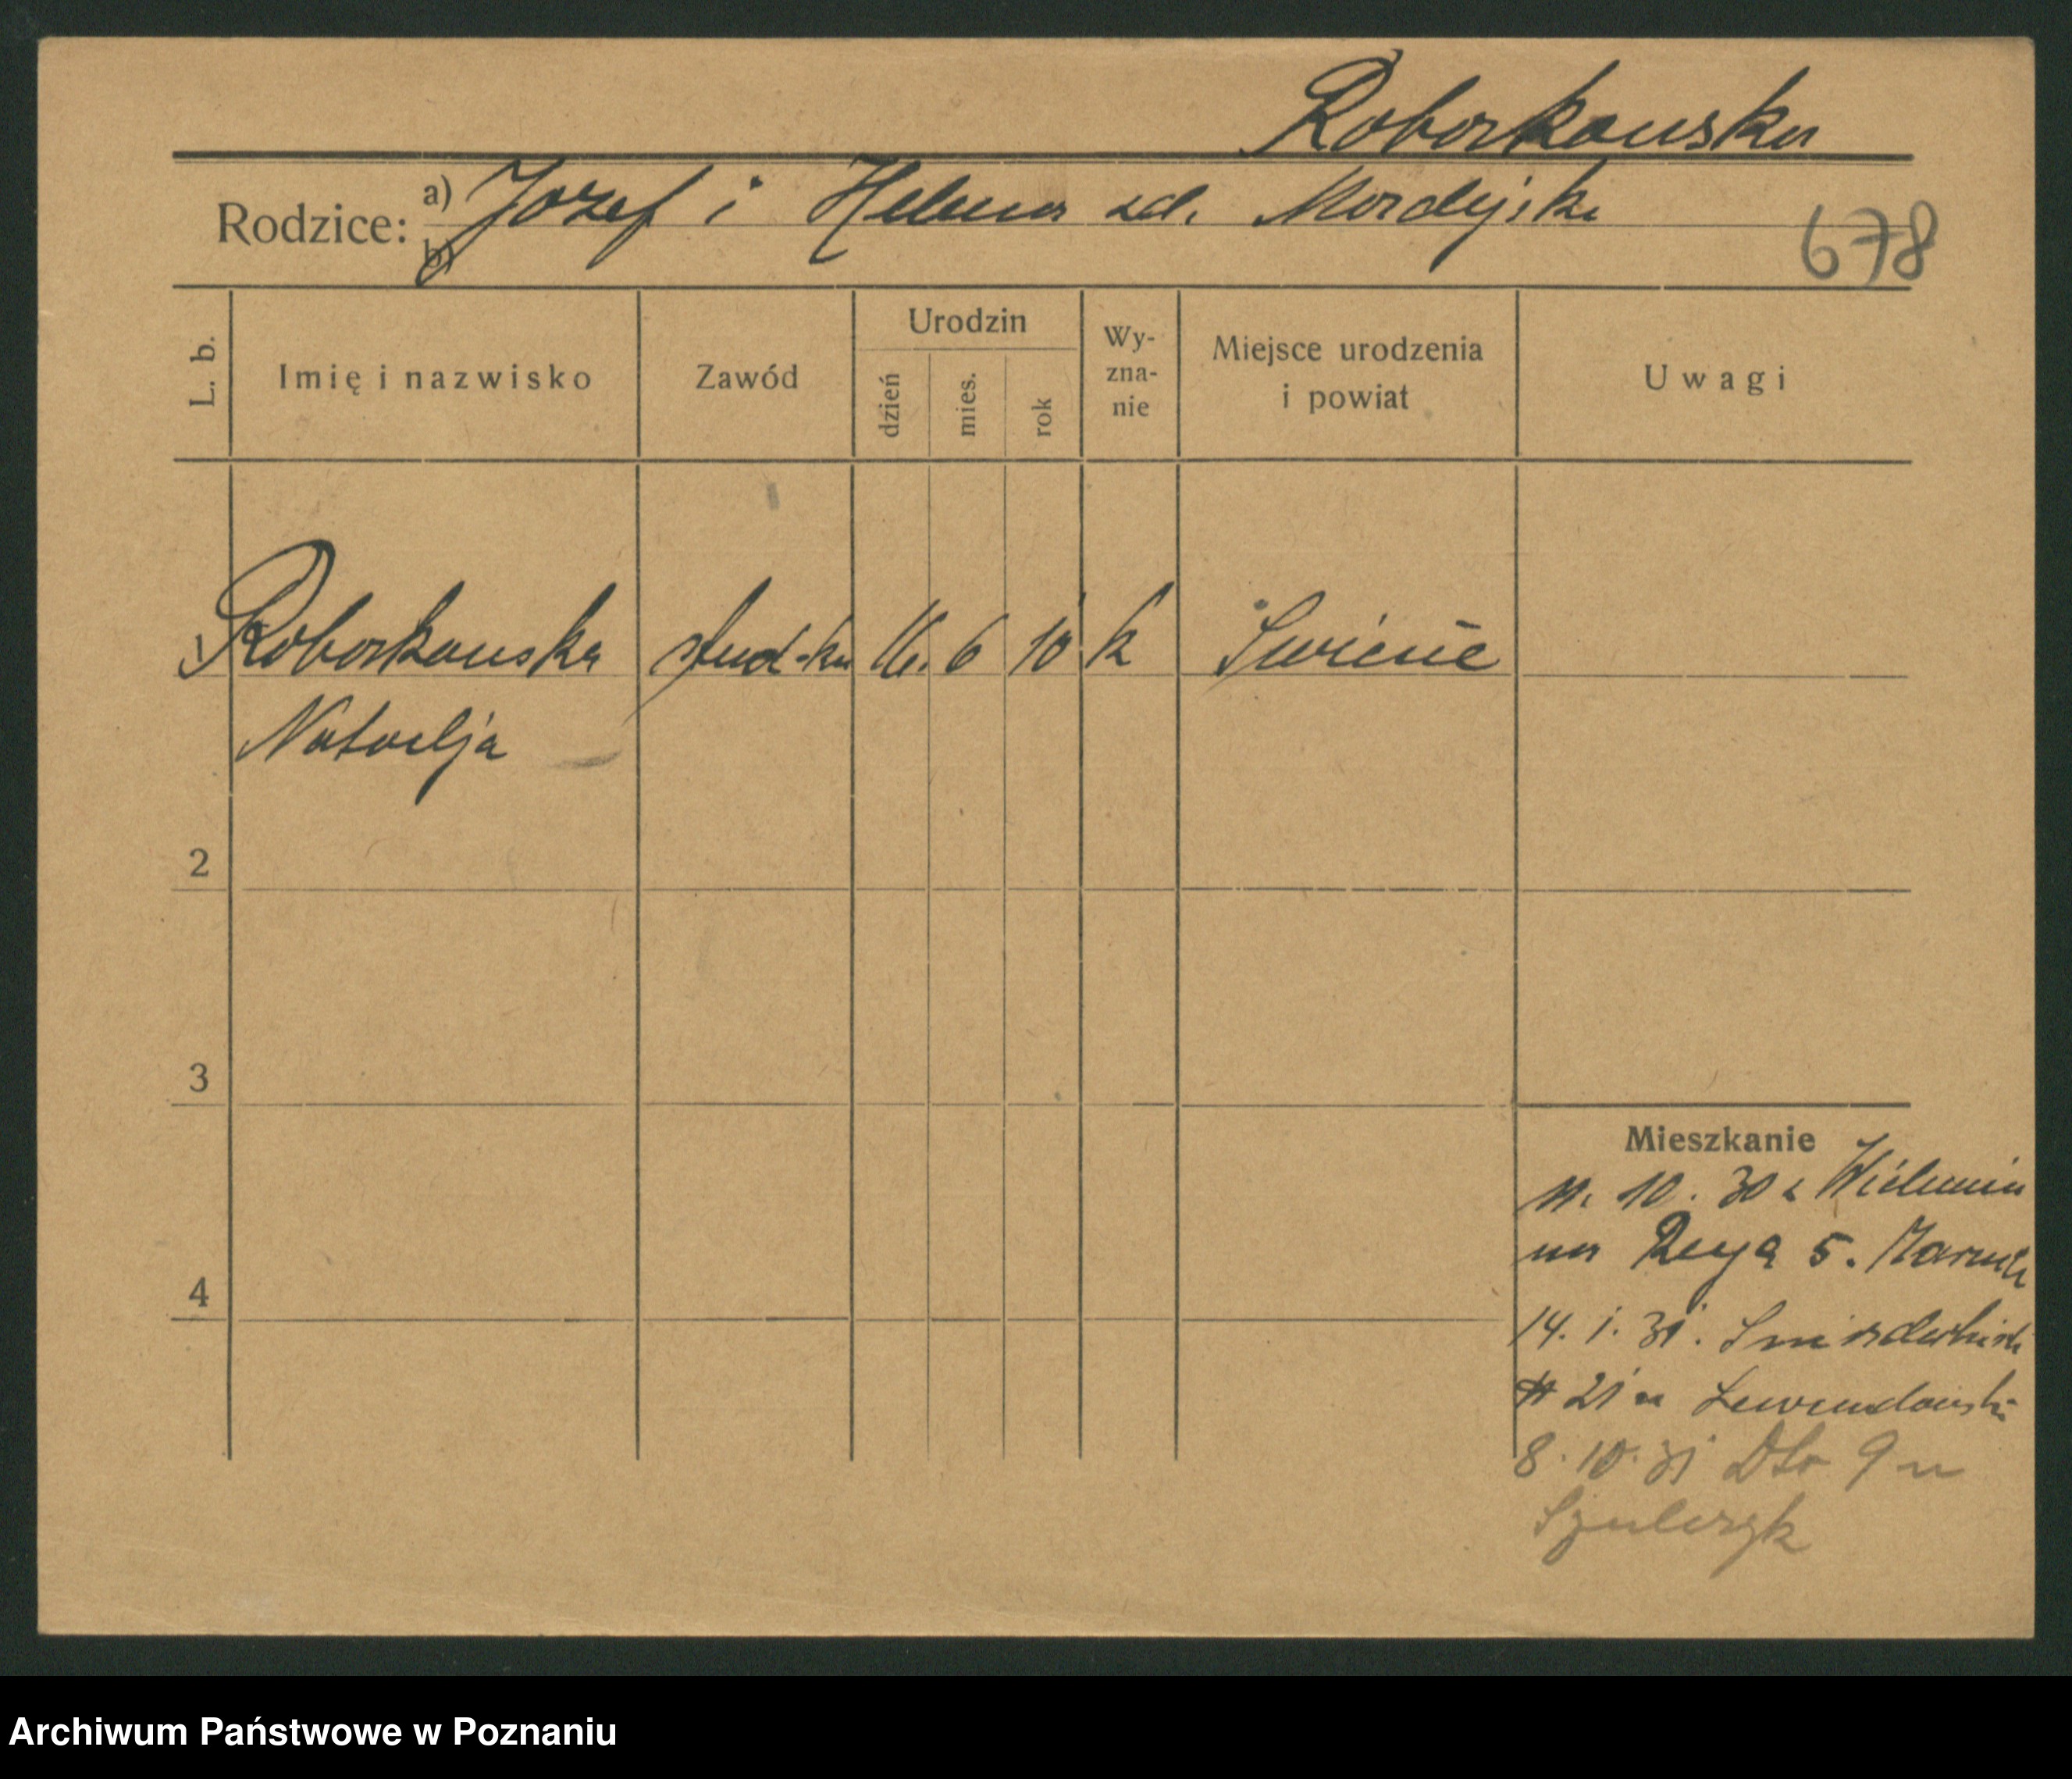 Roborkowska
Rodzice: a) Jozef i Helena zd.
b)
678
L. b.
Imię i nazwisko
Zawód
Urodzin
dzień
mies.
rok
Wy-
zna-
nie
Miejsce urodzenia
i powiat
Uwagi
1 Roborkowska stud-ka 16. 6 10 k
Natalja
2
3
4
Mieszkanie
11. 10. 30 z Wielunia
na Reya 5.
14. 1. 31.
21 u Lewandowski
8. 10. 31 9 u
Szulczyk
Archiwum Państwowe w Poznaniu